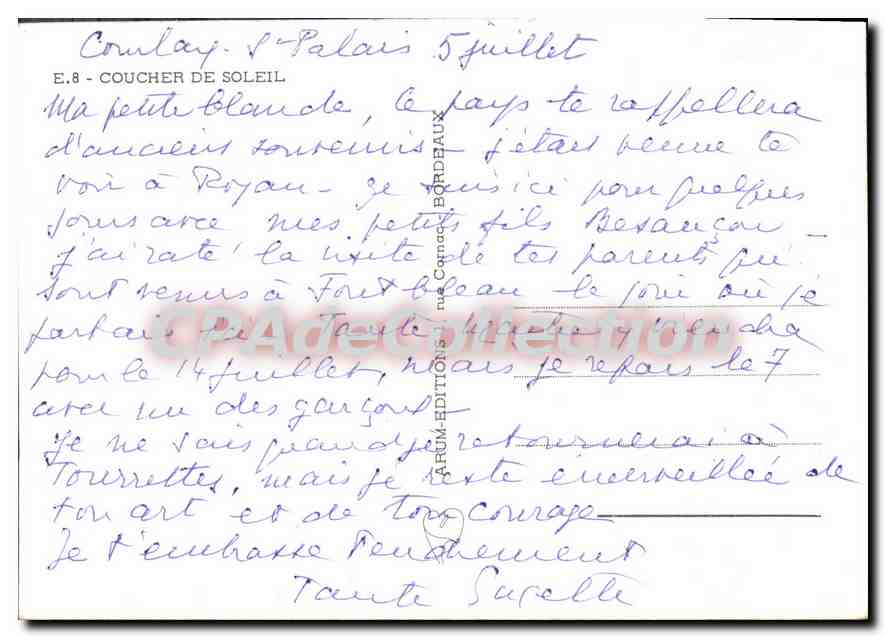 St-Palais 5 juillet
E.8 - COUCHER DE SOLEIL
Ma petite blonde, le pays te rappellera
d'anciens souvenirs - j'étais venue te
voir à Royan - je suis ici pour quelques
jours avec mes petits fils Besançon -
j'ai raté la visite de tes parents qui
sont venus à Font bleau le jour où je
partais ici. Tante Marthe y viendra
pour le 14 juillet, mais je repars le 7
avec un des garçons -
Je ne sais quand je retournerai à
Tourrettes, mais je reste émerveillée de
ton art et de ton courage
Je t'embrasse tendrement
Tante Suzette
ARUM-EDITIONS 1 rue Cornac BORDEAUX
CPAdeCollection